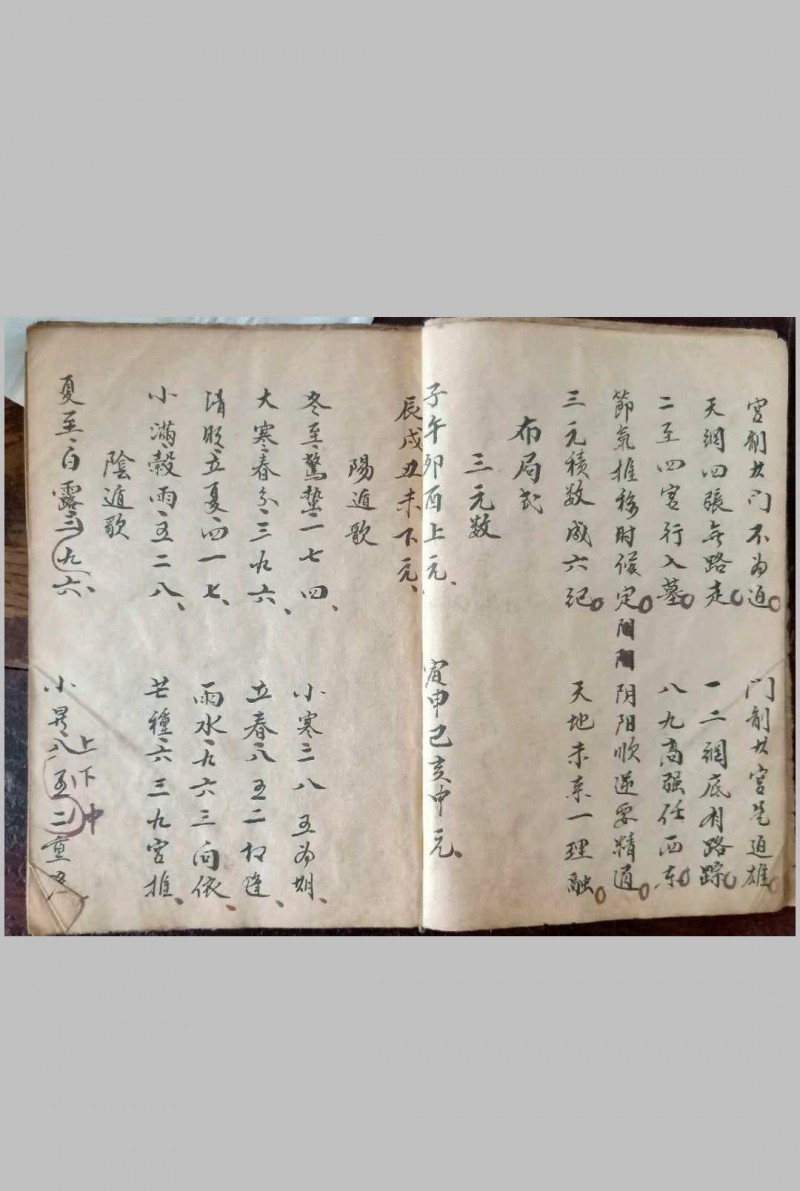 宫制其门不为迫。 门制其宫是迫雄。
天網四張無路走。 一二網底有路踪。
二至四宫行入墓。 八九高强任西东。
節氣推移时候定。 阴阳顺逆要精通。
三元積数成六纪。 天地未来一理融。
布局式
三元数
子午卯酉上元、 寅申己亥中元、
辰戌丑未下元、
陽遁歌
冬至驚蟄一七四、 小寒二八五为期、
大寒春分三九六、 立春八五二相逢、
清明立夏四一七、 雨水九六三向依、
小滿穀雨五二八、 芒種六三九宫推、
陰遁歌
夏至白露三九六、 小暑八五二重
上下中